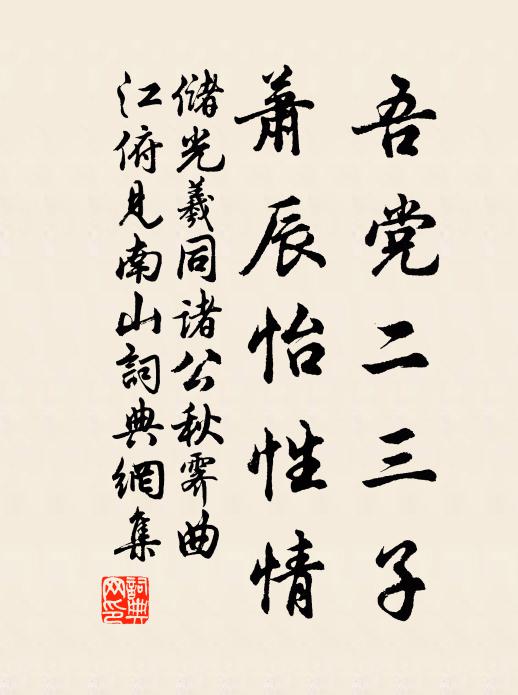 吾党二三子
萧辰怡性情
储光羲同诸公秋霁曲
江俯见南山詞典網集
詞典
网印